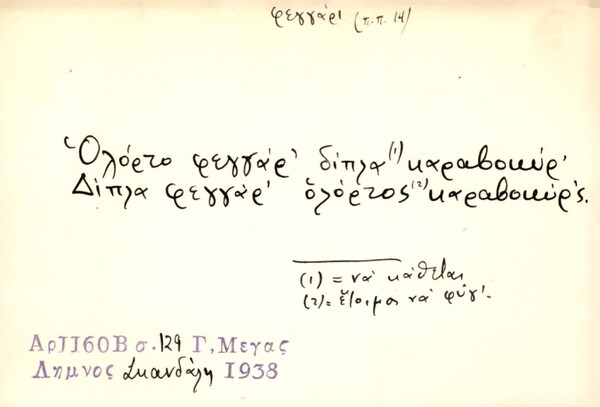 φεγγάρι (π.π. 14)
Ὁλόρτο φεγγάρ' δίπλα(1) καραβοκύρ'
Δίπλα φεγγάρ' ὁλόρτος(2) καραβοκύρ'ς.
(1) = νὰ κάθεται
(2) = ἕτοιμος νὰ φύγ'.
Αρ 1160Β σ. 129 Γ, Μεγας
Λημνος Σκανδάλη 1938